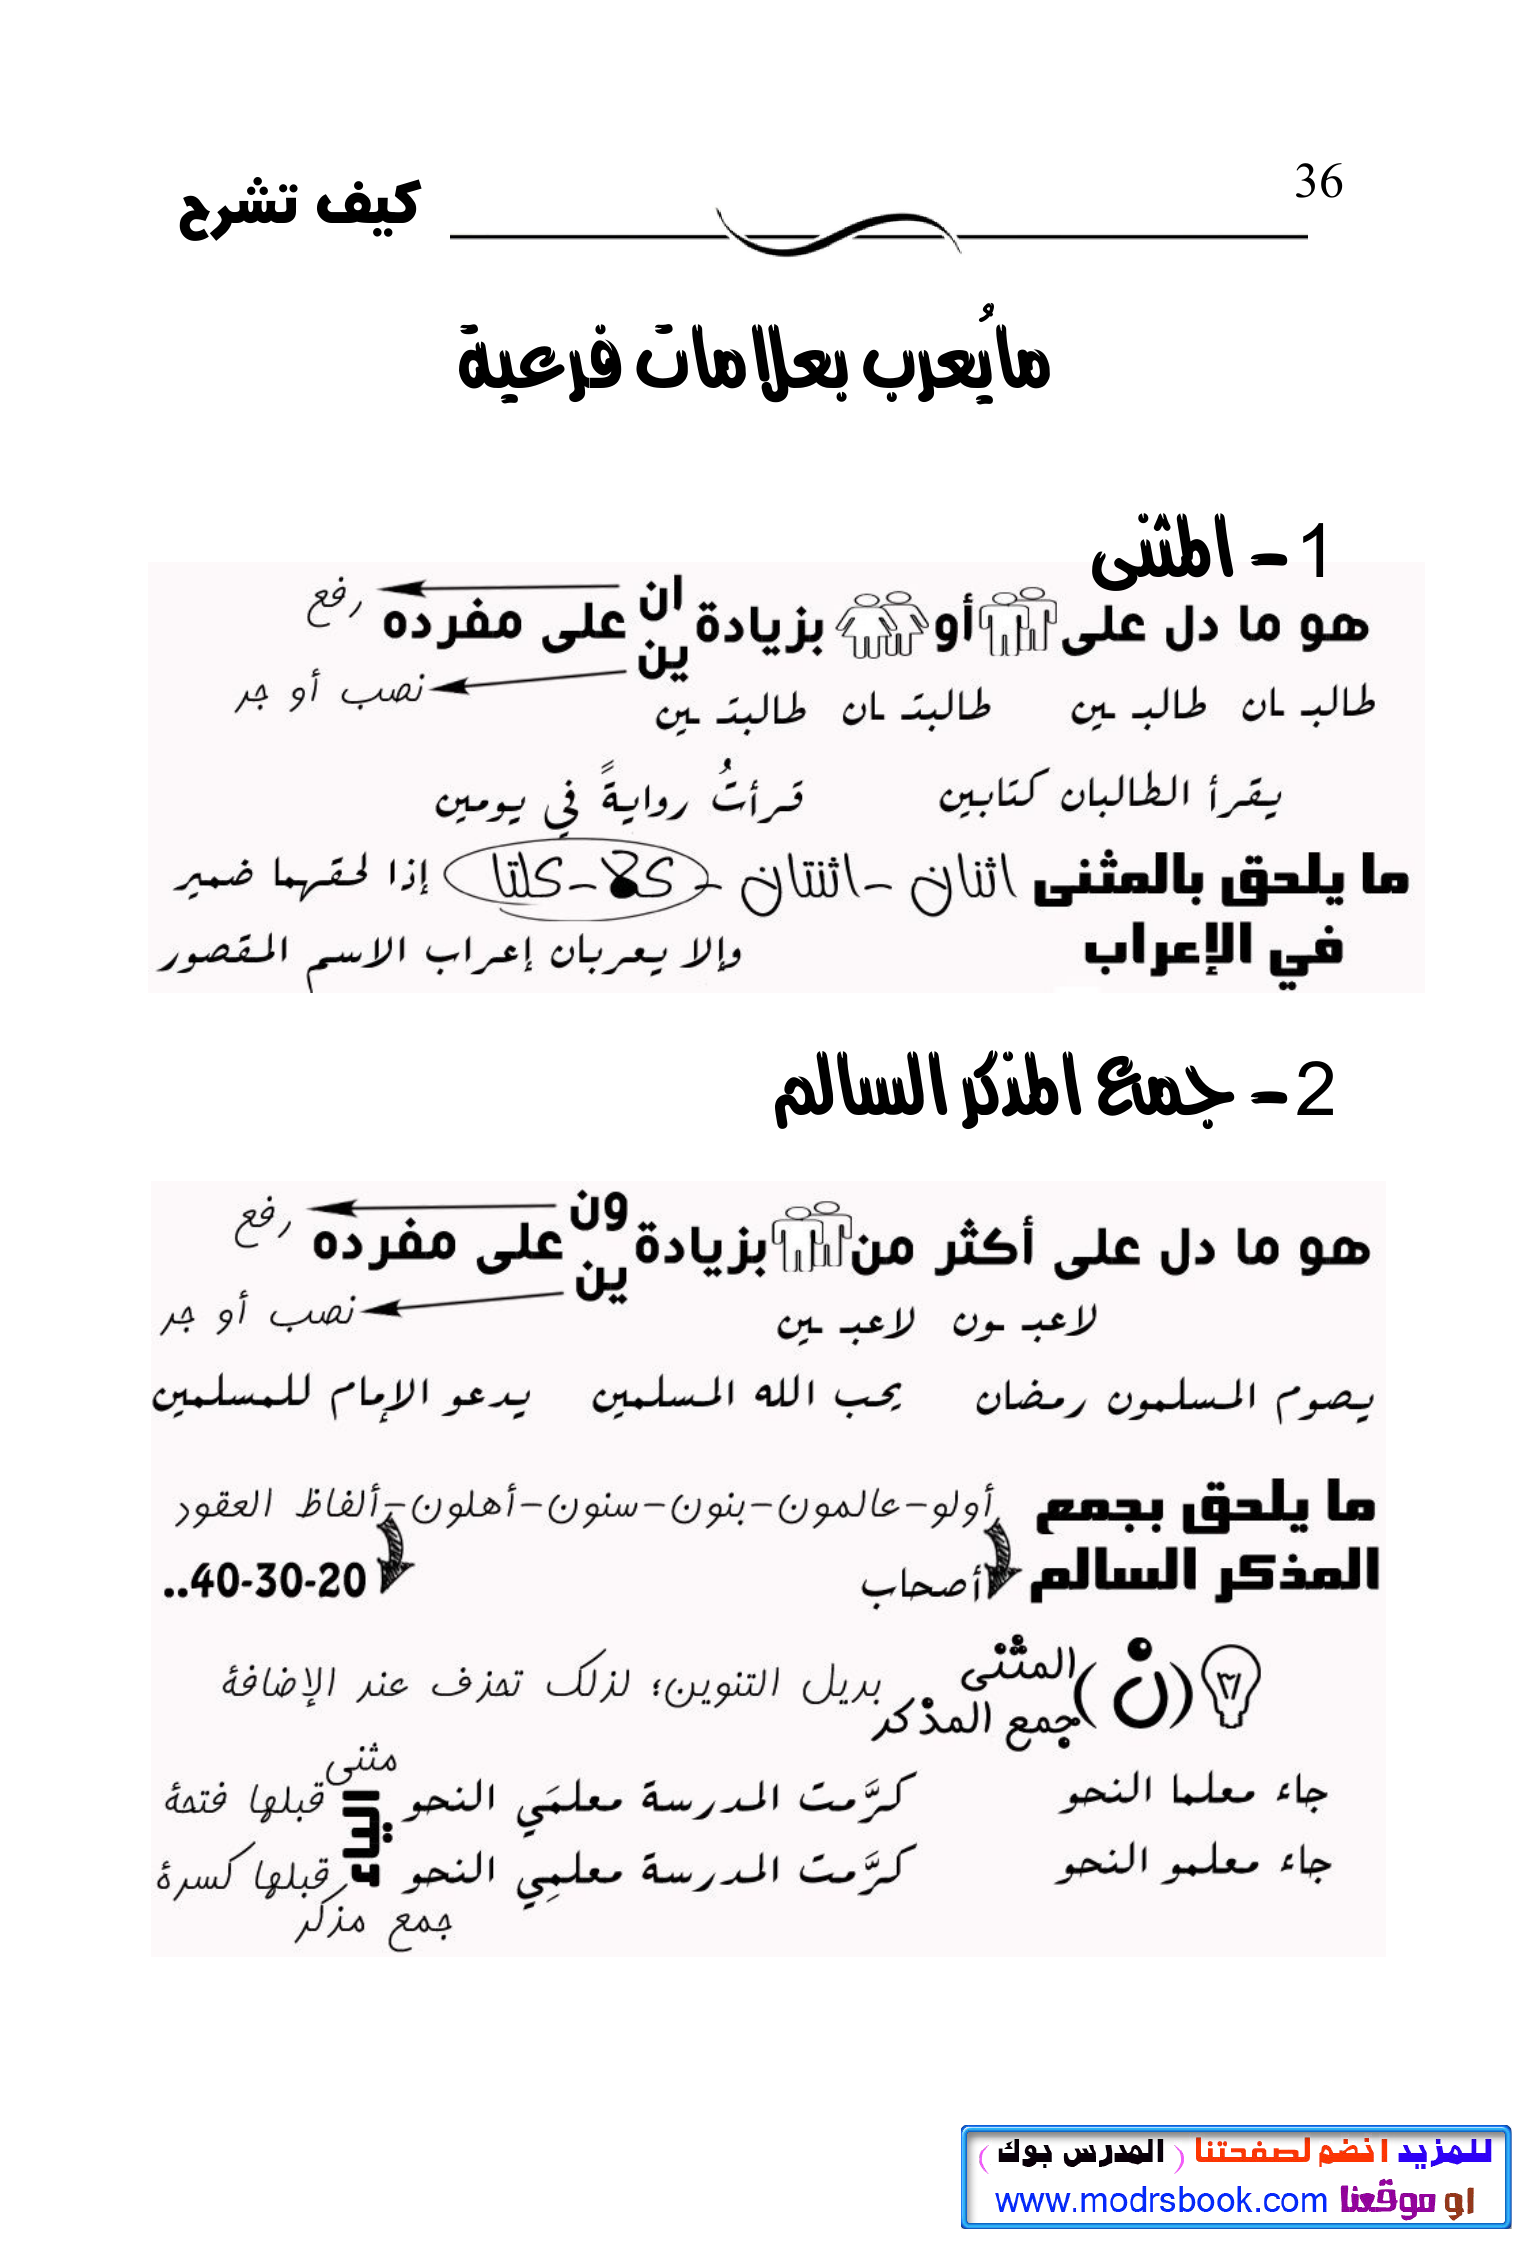 36
كيف تشرح
مايُعرب بعلامات فرعية
1 - المثنى
هو ما دل على أو بزيادة ان ين على مفرده
رفع
نصب أو جر
طالبـ ـان طالبـ ـين طالبتـ ـان طالبتـ ـين
يقرأ الطالبان كتابين قرأتُ روايةً في يومين
ما يلحق بالمثنى اثنان - اثنتان - كلا - كلتا إذا لحقهما ضمير
في الإعراب وإلا يعربان إعراب الاسم المقصور
2 - جمع المذكر السالم
هو ما دل على أكثر من بزيادة ون ين على مفرده
رفع
نصب أو جر
لاعبـ ـون لاعبـ ـين
يصوم المسلمون رمضان يحب الله المسلمين يدعو الإمام للمسلمين
ما يلحق بجمع أولو-عالمون-بنون-سنون-أهلون-ألفاظ العقود
المذكر السالم أصحاب 20-30-40..
(ن) المثنى جمع المذكر بديل التنوين؛ لذلك تحذف عند الإضافة
جاء معلما النحو كرَّمت المدرسة معلمَي النحو
جاء معلمو النحو كرَّمت المدرسة معلمِي النحو
الياء
مثنى
قبلها فتحة
قبلها كسرة
جمع مذكر
للمزيد انضم لصفحتنا ( المدرس بوك )
او موقعنا www.modrsbook.com